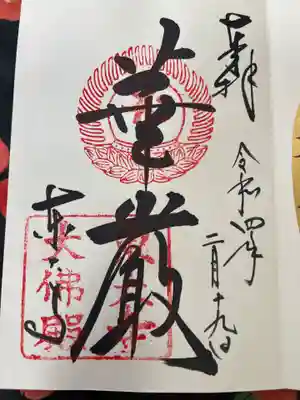 奉拝
令和四年
二月十九日
華厳
東大寺
大佛殿